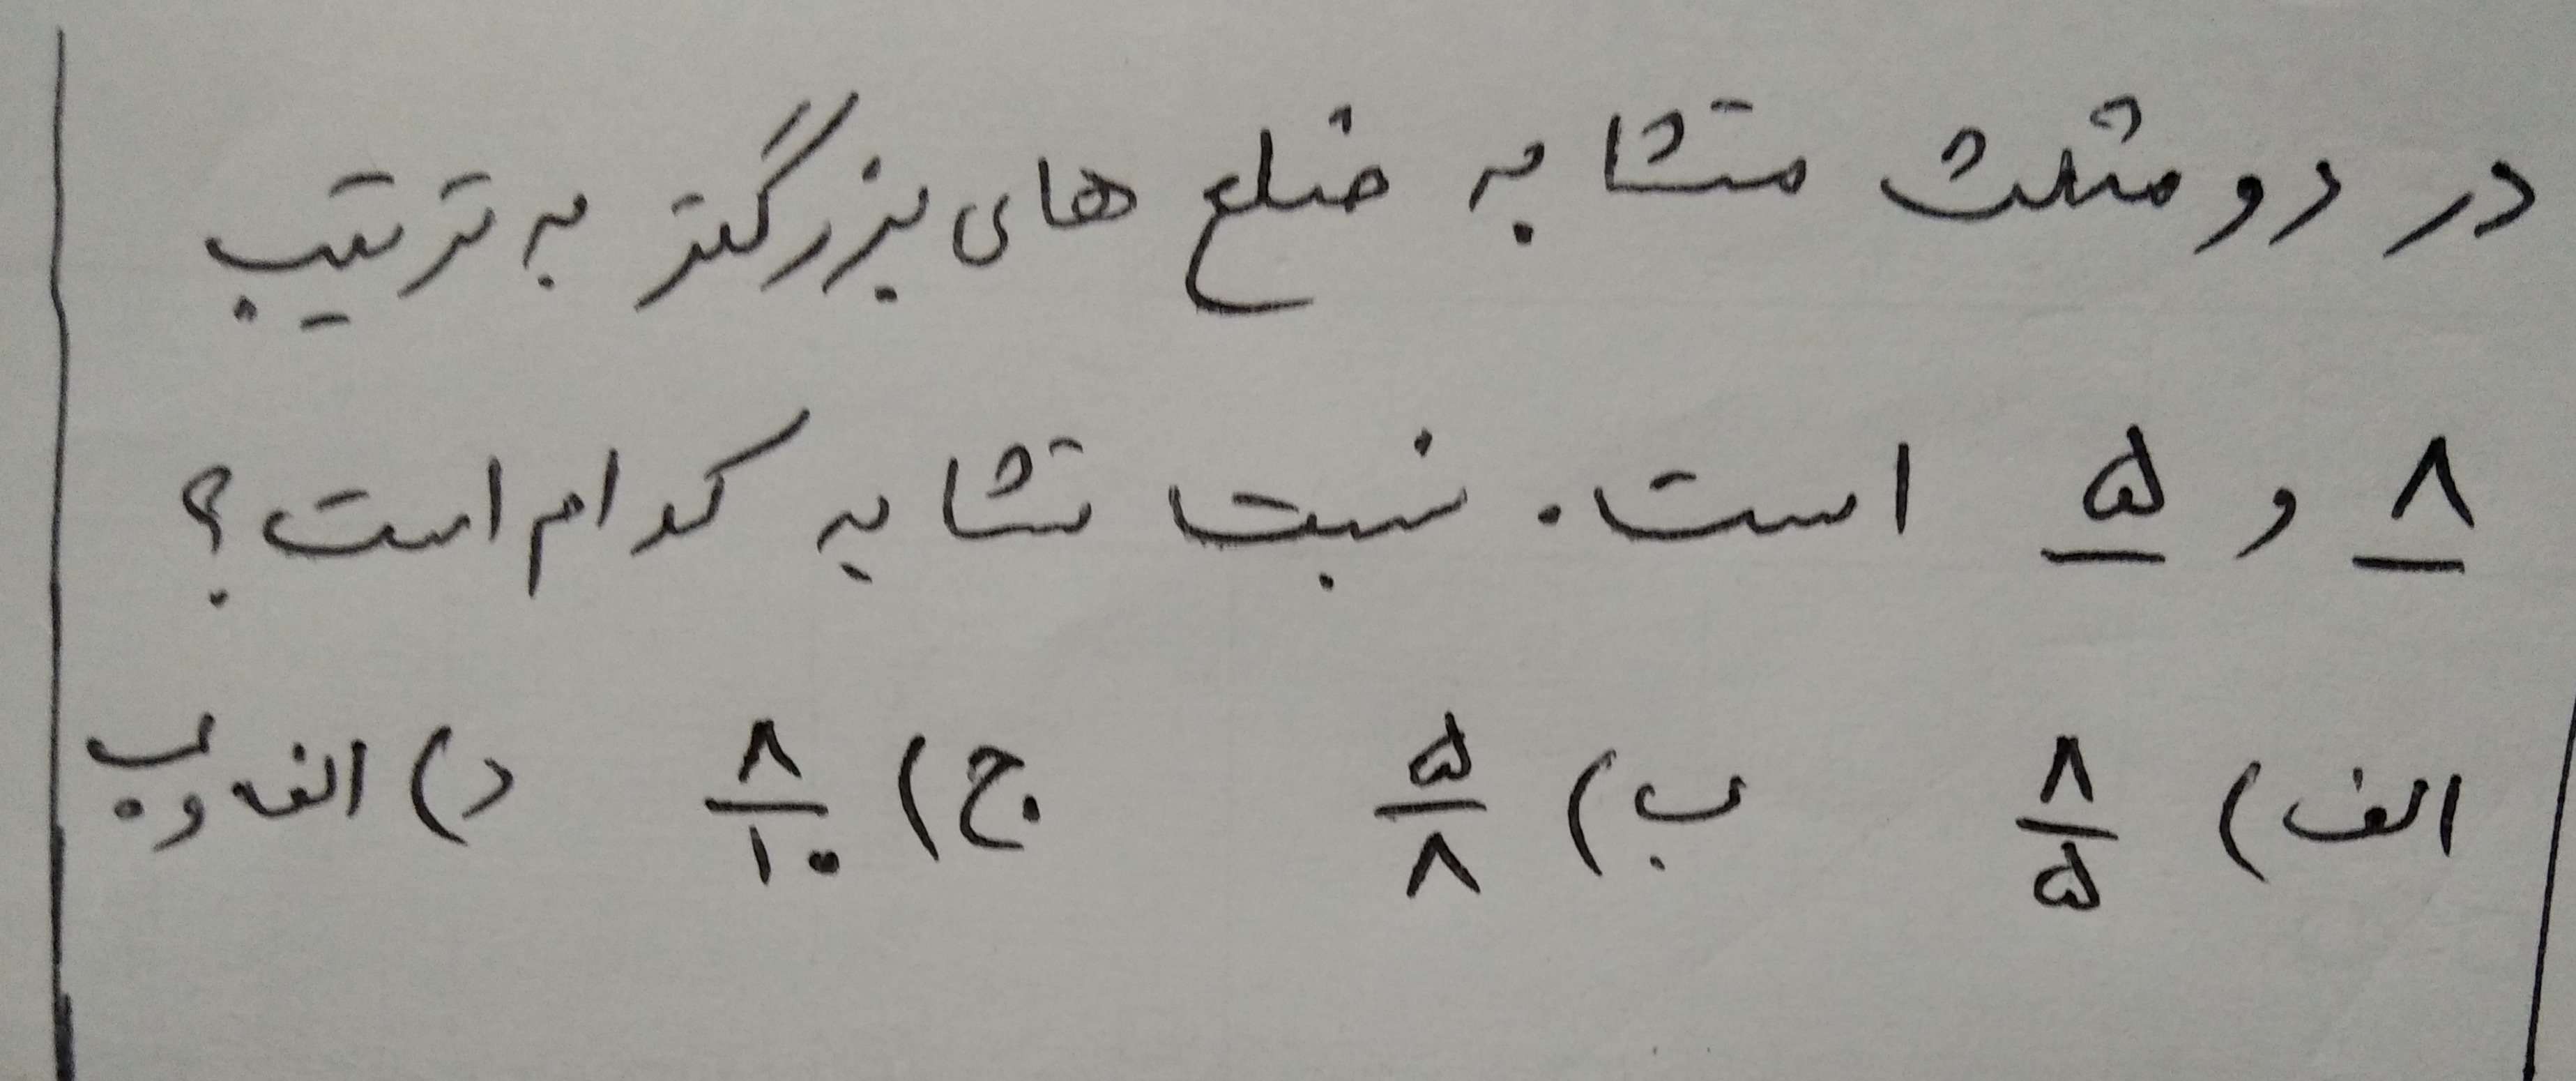 در دو مثلث متشابه ضلع های بزرگتر به ترتیب
۸ و ۵ است. نسبت تشابه کدام است؟
الف) ۸/۵ ب) ۵/۸ ج) ۸/۱۰ د) الف و ب